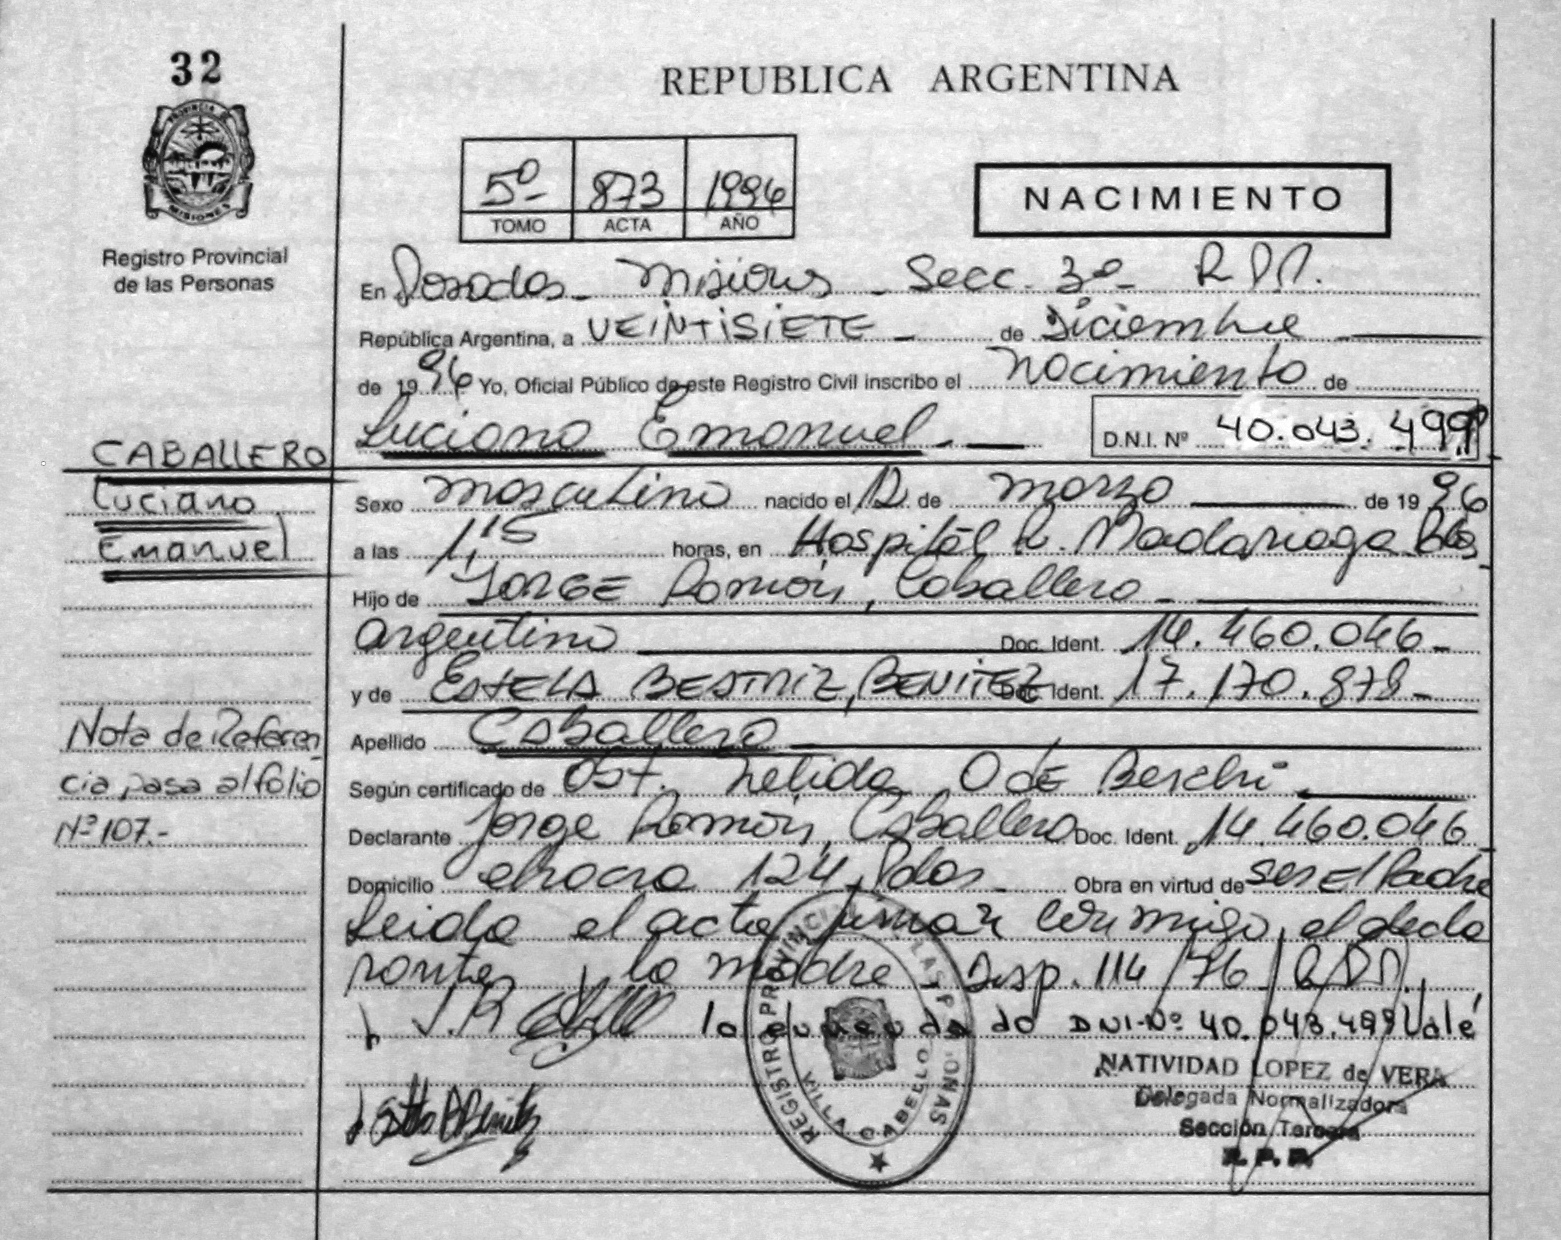 32
REPUBLICA ARGENTINA
PROVINCIA DE
MISIONES
Registro Provincial
de las Personas
5º 873 1996
TOMO ACTA AÑO
NACIMIENTO
En Posadas - Misiones - Secc. 3º R.P.P.
República Argentina, a VEINTISIETE - de Diciembre
de 1996 Yo, Oficial Público de este Registro Civil inscribo el Nacimiento de
Luciano Emanuel. - D.N.I. Nº 40.043.499
CABALLERO
Luciano
Emanuel
Sexo masculino nacido el 12 de marzo de 1996
a las 1,15 horas, en Hospital R. Madariaga Pdas
Hijo de JORGE Ramón, Caballero -
argentino Doc. Ident. 14.460.046 -
y de ESTELA BEATRIZ, BENITEZ Doc. Ident. 17.170.878 -
Apellido Caballero
Nota de Referen
cia pasa al folio
Nº 107.-
Según certificado de Obst. Nelida O de
Declarante Jorge Ramón, Caballero Doc. Ident. 14.460.046
Domicilio chacra 124, Pdas - Obra en virtud de ser el Padre
Leida el acta firman conmigo, el decla
rante y la madre Disp. 114/76 R.P.P.
lo enmendado DNI-Nº 40.043.499 Vale
REGISTRO PROVINCIAL DE LAS PERSONAS
VILLA CABELLO
NATIVIDAD LOPEZ de VERA
Delegada Normalizadora
Sección Tercera
R. P. P.